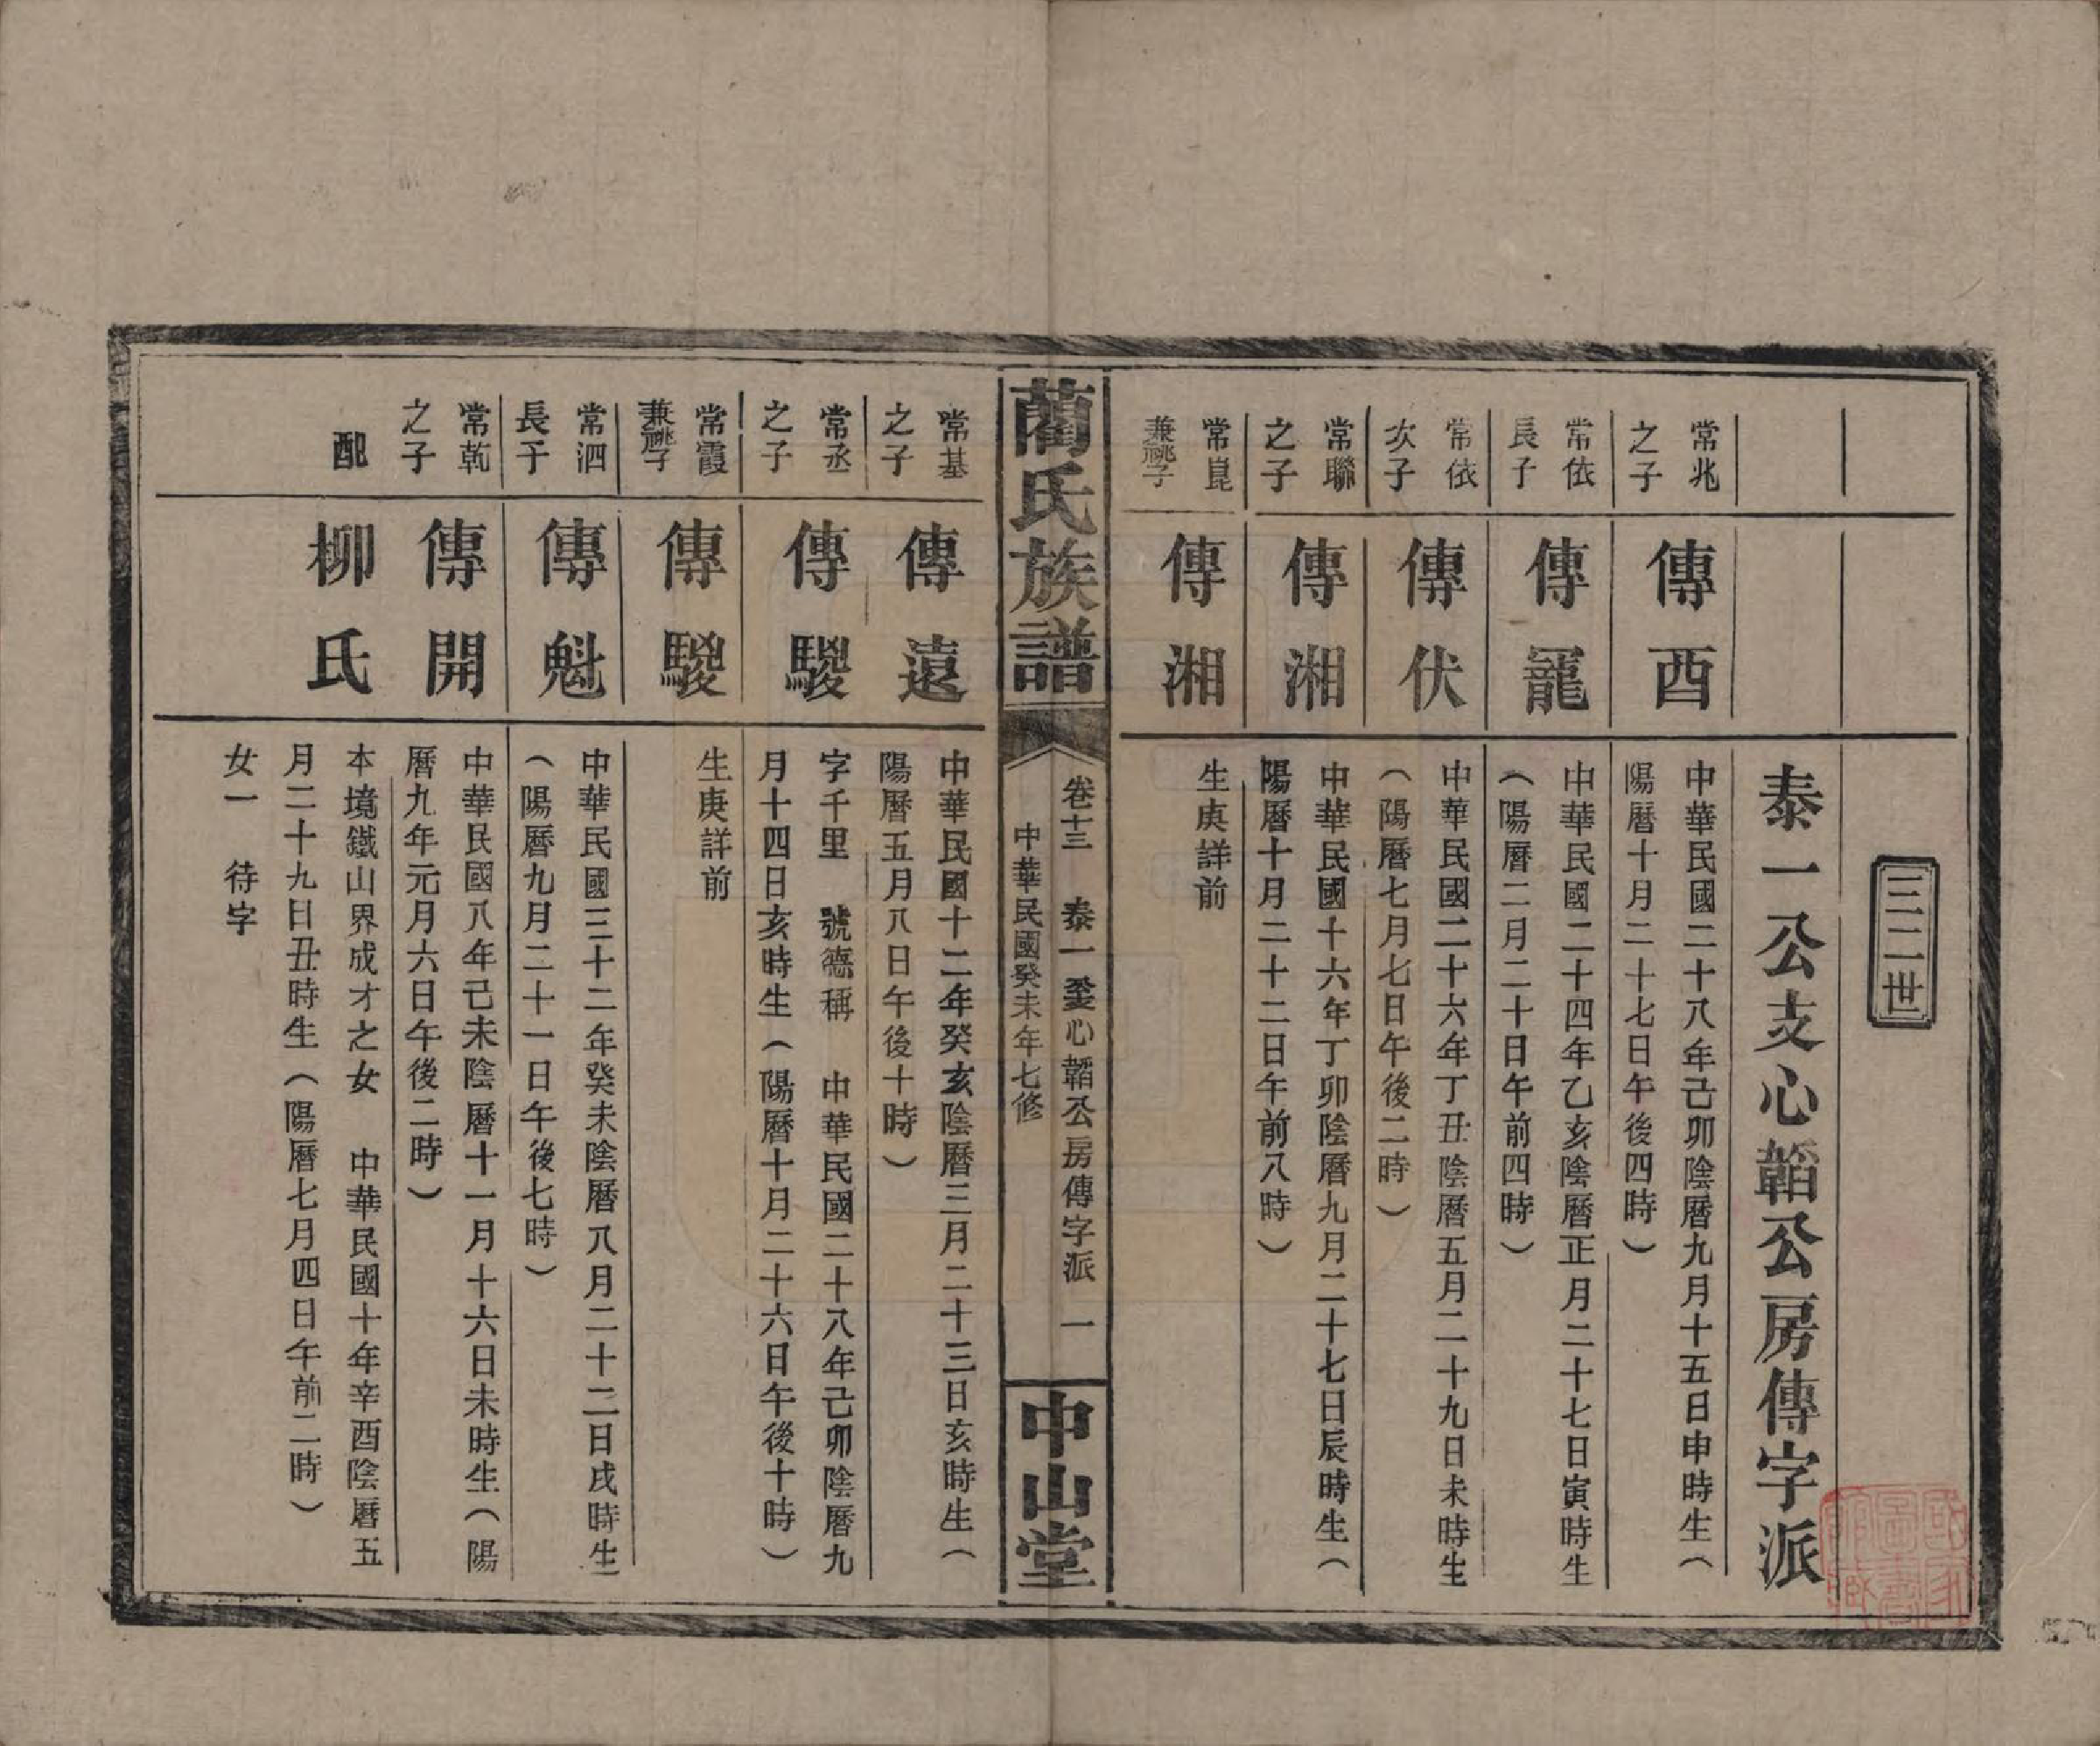 三二世
泰一公支心韜公房傳字派
常兆之子
傳酉
中華民國二十八年己卯陰曆九月十五日申時生（
陽曆十月二十七日午後四時）
常依長子
傳寵
中華民國二十四年乙亥陰曆正月二十七日寅時生
（陽曆二月二十日午前四時）
常依次子
傳伏
中華民國二十六年丁丑陰曆五月二十九日未時生
（陽曆七月七日午後二時）
常聯之子
傳湘
中華民國十六年丁卯陰曆九月二十七日辰時生（
陽曆十月二十二日午前八時）
常崑兼祧子
傳湘
生庚詳前
藺氏族譜
卷十三 泰一 心韜公房傳字派 一
中華民國癸未年七修
中山堂
常基之子
傳遠
中華民國十二年癸亥陰曆三月二十三日亥時生（
陽曆五月八日午後十時）
常丞之子
傳騣
字千里 號德稱 中華民國二十八年己卯陰曆九
月十四日亥時生（陽曆十月二十六日午後十時）
常霞兼祧子
傳騣
生庚詳前
常泗長子
傳魁
中華民國三十二年癸未陰曆八月二十二日戌時生
（陽曆九月二十一日午後七時）
常乾之子
傳開
中華民國八年己未陰曆十一月十六日未時生（陽
曆九年元月六日午後二時）
配
柳氏
本境鐵山界成才之女 中華民國十年辛酉陰曆五
月二十九日丑時生（陽曆七月四日午前二時）
女一 待字